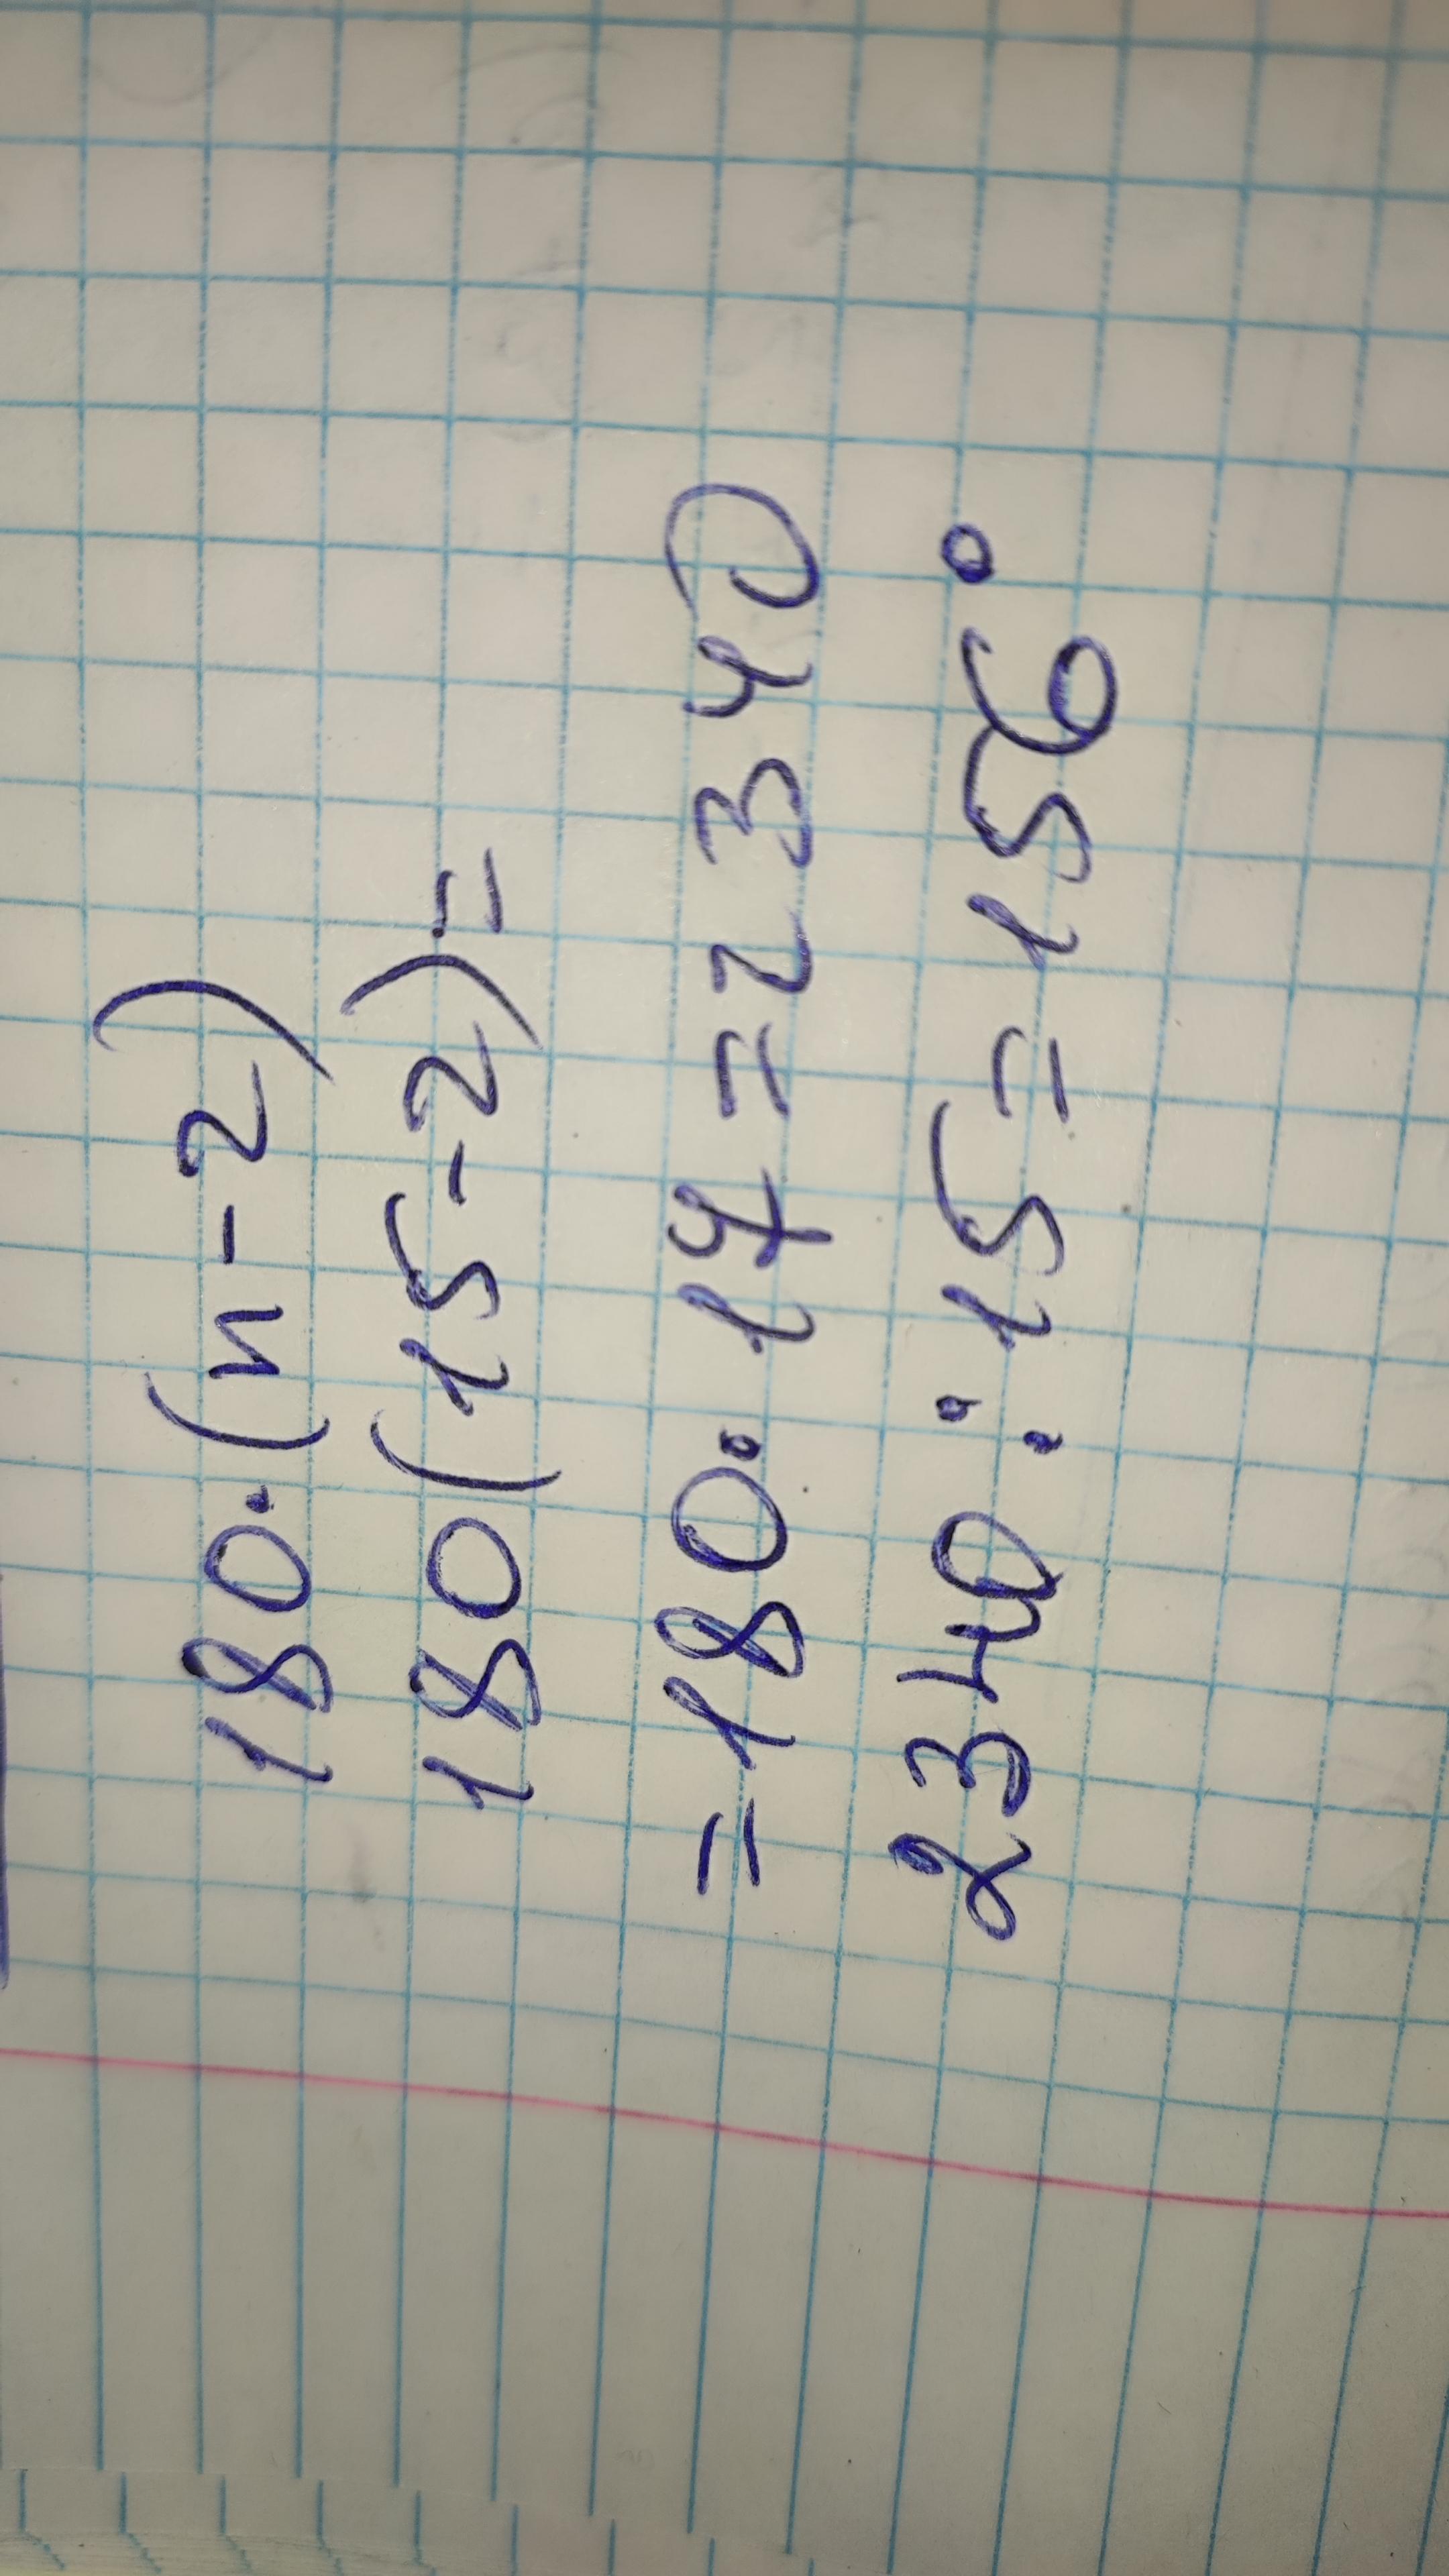 180·(n-2)
180(15-2)=
=180·17=2340
2340:15=156°